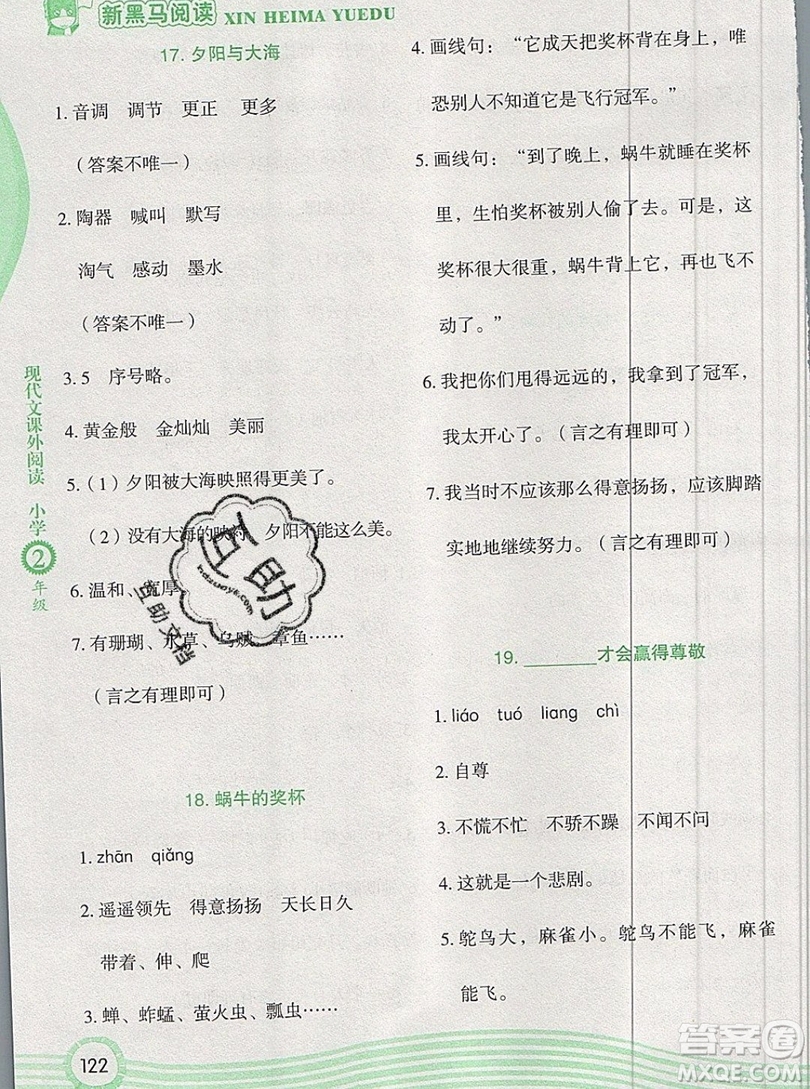 新黑马阅读 XIN HEIMA YUEDU
17. 夕阳与大海
1. 音调 调节 更正 更多
(答案不唯一)
2. 陶器 喊叫 默写
淘气 感动 墨水
(答案不唯一)
3. 5 序号略。
4. 黄金般 金灿灿 美丽
5. (1) 夕阳被大海映照得更美了。
(2) 没有大海的映衬,夕阳不能这么美。
6. 温和、宽厚
7. 有珊瑚、水草、乌贼、章鱼……
(言之有理即可)
18. 蜗牛的奖杯
1. zhān qiǎng
2. 遥遥领先 得意扬扬 天长日久
带着、伸、爬
3. 蝉、蚱蜢、萤火虫、瓢虫……
4. 画线句:“它成天把奖杯背在身上,唯
恐别人不知道它是飞行冠军。”
5. 画线句:“到了晚上,蜗牛就睡在奖杯
里,生怕奖杯被别人偷了去。可是,这
奖杯很大很重,蜗牛背上它,再也飞不
动了。”
6. 我把你们甩得远远的,我拿到了冠军,
我太开心了。(言之有理即可)
7. 我当时不应该那么得意扬扬,应该脚踏
实地地继续努力。(言之有理即可)
19. ________才会赢得尊敬
1. liáo tuó liang chì
2. 自尊
3. 不慌不忙 不骄不躁 不闻不问
4. 这就是一个悲剧。
5. 鸵鸟大,麻雀小。鸵鸟不能飞,麻雀
能飞。
现代文课外阅读 小学2年级
122
互助
互助文档
答案圈
MXQE.COM